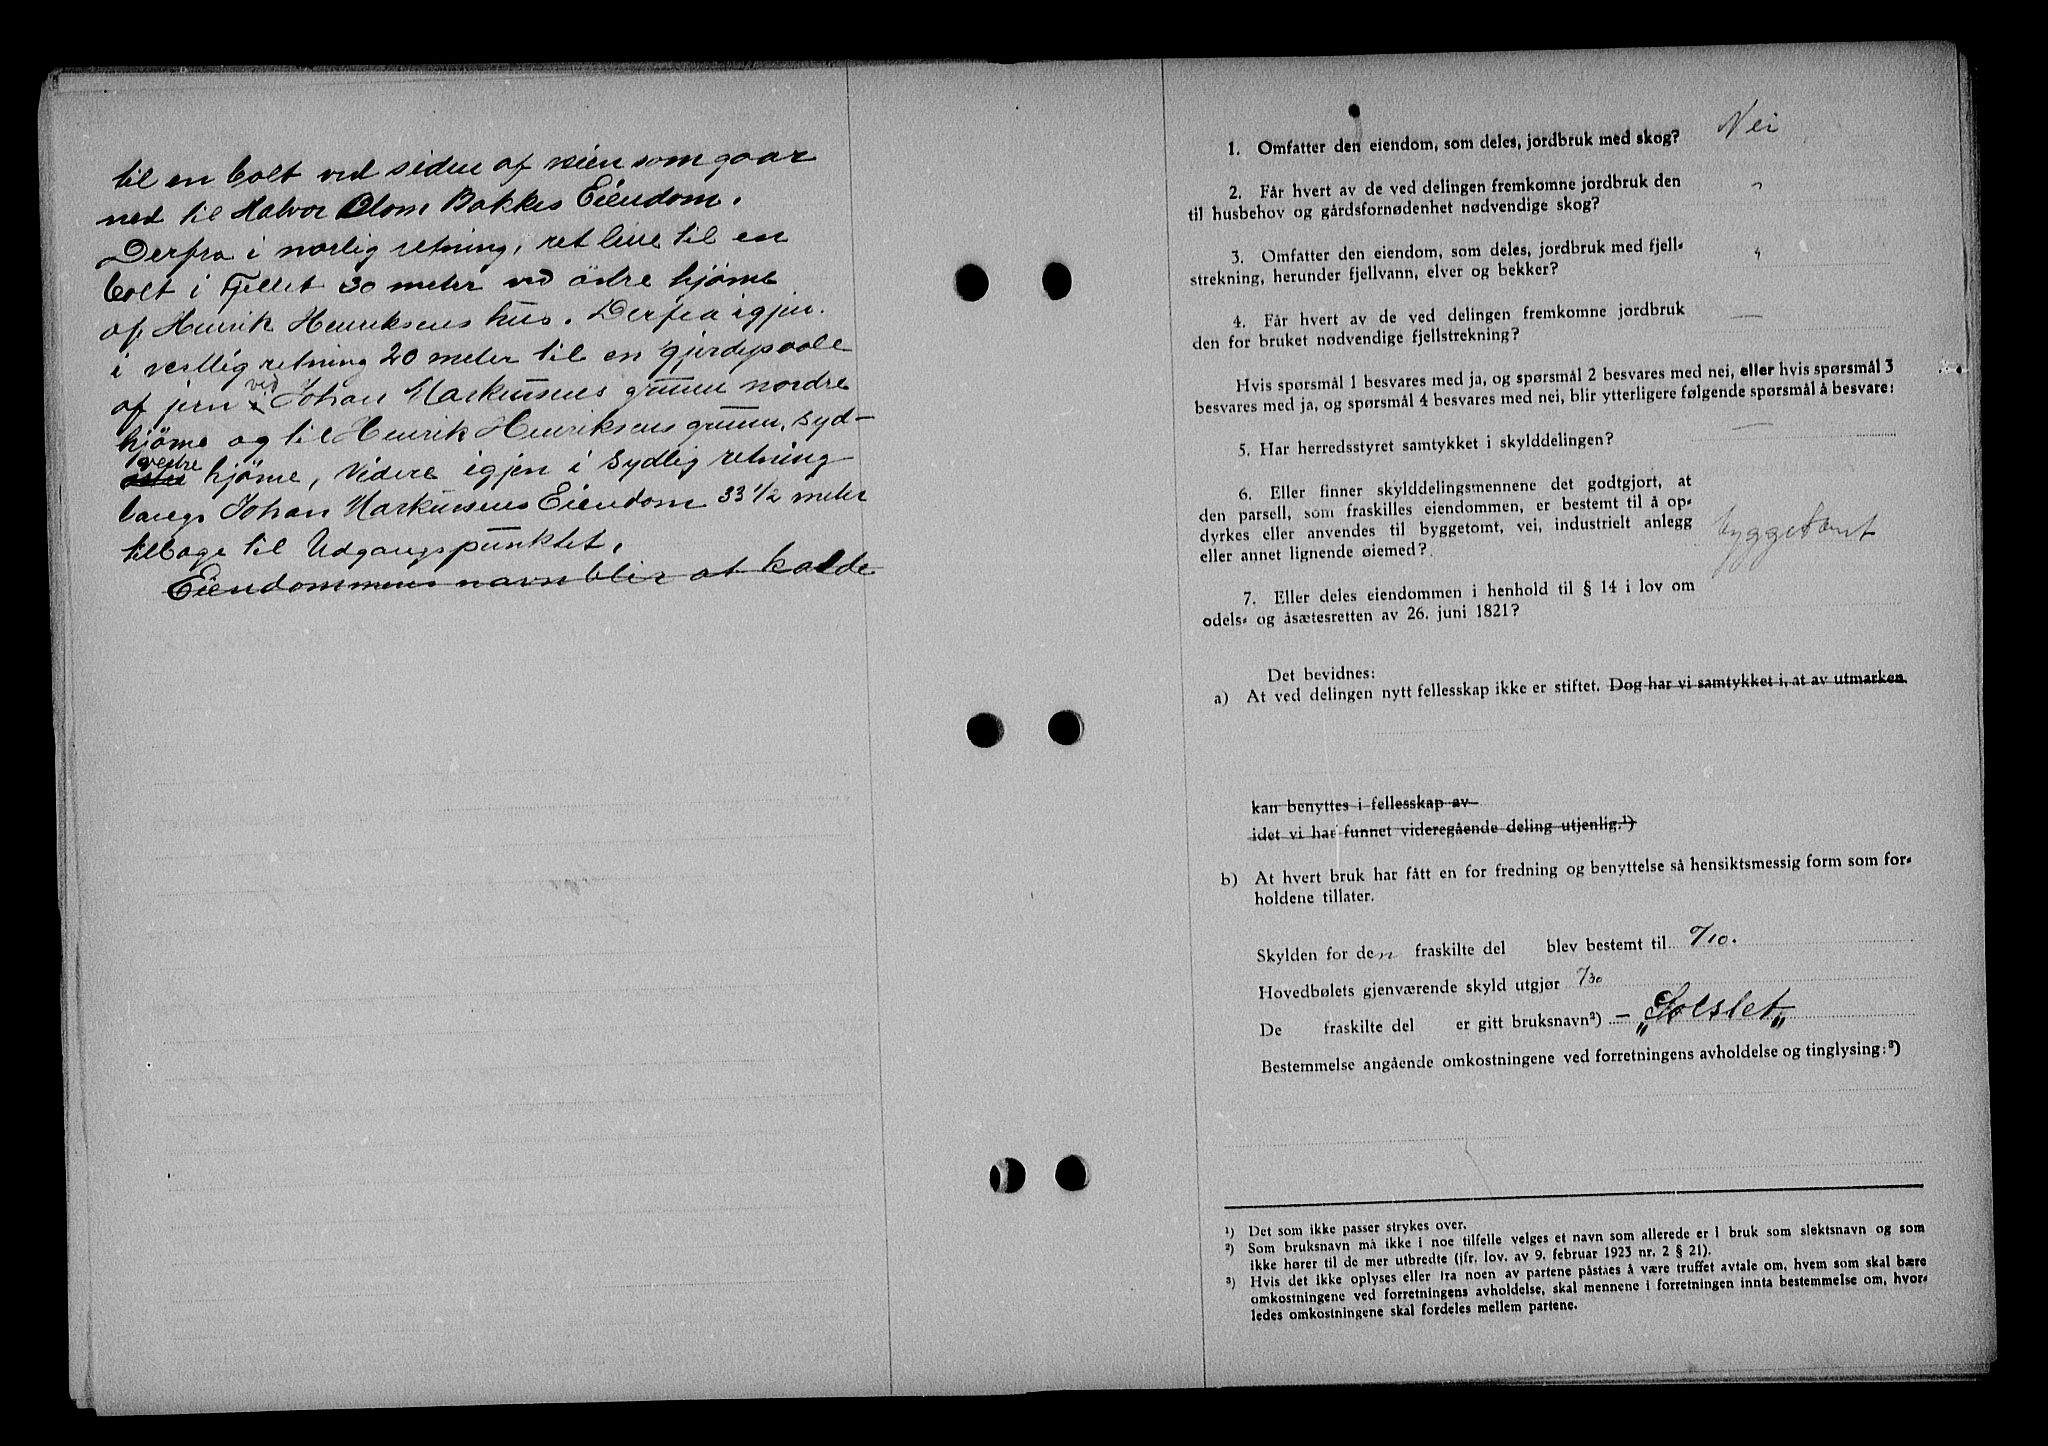 til en bolt ved siden af veien som gaar
ned til Halvor Olom Bakkes Eiendom.
Derfra i norlig retning, ret linie til en
bolt i Fjellet 30 meter ved östre hjörne
af Henrik Henriksens hus. Derfra igjen.
i vestlig retning 20 meter til en gjerdepaale
af jern ved Johan Markussens grunn nordre
hjörne og til Henrik Henriksens grunn, syd-
vestre hjörne, Videre igjen i Sydlig retning
langs Johan Markussens Eiendom 33 1/2 meter
tilbage til Udgangspunktet.
Eiendommens navn blir at kalde
1. Omfatter den eiendom, som deles, jordbruk med skog? Nei
2. Får hvert av de ved delingen fremkomne jordbruk den
til husbehov og gårdsfornødenhet nødvendige skog? "
3. Omfatter den eiendom, som deles, jordbruk med fjell-
strekning, herunder fjellvann, elver og bekker? "
4. Får hvert av de ved delingen fremkomne jordbruk —
den for bruket nødvendige fjellstrekning?
Hvis spørsmål 1 besvares med ja, og spørsmål 2 besvares med nei, eller hvis spørsmål 3
besvares med ja, og spørsmål 4 besvares med nei, blir ytterligere følgende spørsmål å besvare:
5. Har herredsstyret samtykket i skylddelingen? —
6. Eller finner skylddelingsmennene det godtgjort, at
den parsell, som fraskilles eiendommen, er bestemt til å op-
dyrkes eller anvendes til byggetomt, vei, industrielt anlegg
eller annet lignende øiemed? byggetomt
7. Eller deles eiendommen i henhold til § 14 i lov om
odels- og åsætesretten av 26. juni 1821?
Det bevidnes:
a) At ved delingen nytt fellesskap ikke er stiftet. Dog har vi samtykket i, at av utmarken
kan benyttes i fellesskap av
idet vi har funnet videregående deling utjenlig.¹)
b) At hvert bruk har fått en for fredning og benyttelse så hensiktsmessig form som for-
holdene tillater.
Skylden for den fraskilte del blev bestemt til 0/10.
Hovedbølets gjenværende skyld utgjør /30
De fraskilte del er gitt bruksnavn²) – „Solslet„
Bestemmelse angående omkostningene ved forretningens avholdelse og tinglysing:³)
¹) Det som ikke passer strykes over.
²) Som bruksnavn må ikke i noe tilfelle velges et navn som allerede er i bruk som slektsnavn og som
ikke hører til de mer utbredte (jfr. lov. av 9. februar 1923 nr. 2 § 21).
³) Hvis det ikke oplyses eller fra noen av partene påstaes å være truffet avtale om, hvem som skal bære
omkostningene ved forretningens avholdelse, skal mennene i forretningen innta bestemmelse om, hvor-
ledes omkostningene skal fordeles mellem partene.